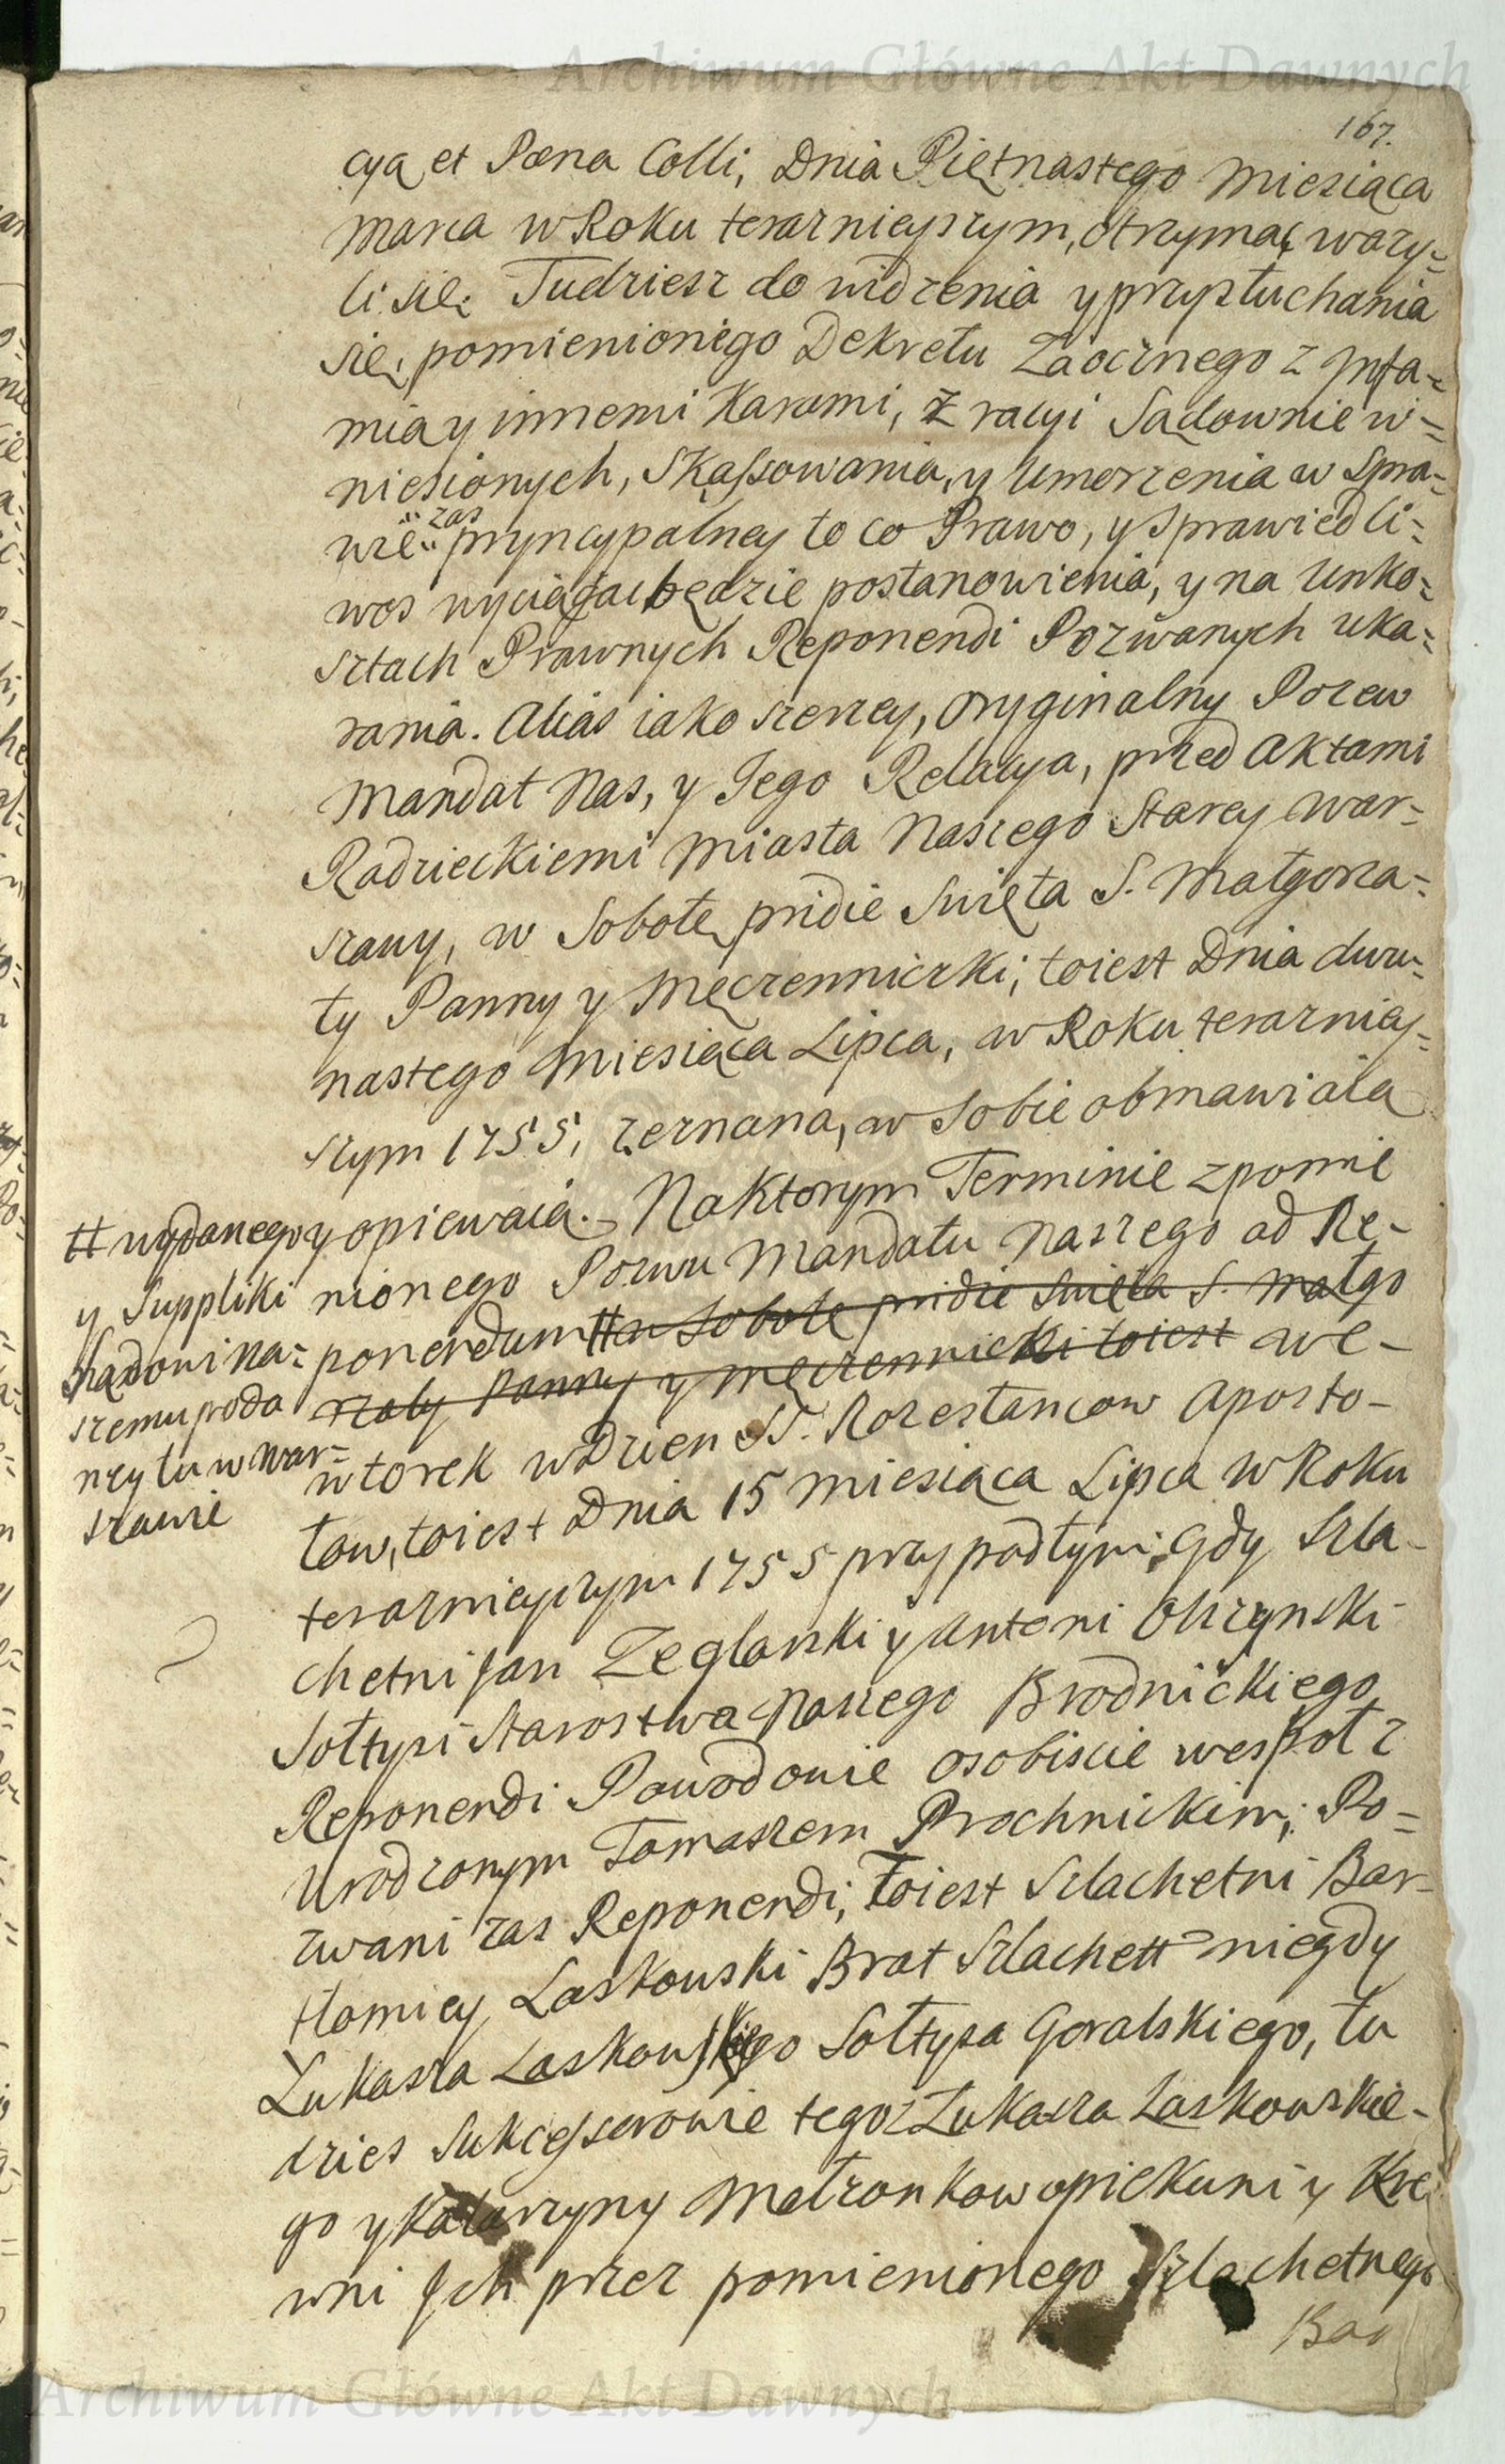 Archiwum Główne Akt Dawnych
167.
cya et Pœna Colli, Dnia Piętnastego Miesiąca
Marca w Roku teraznieyszym, otrzymać wazy=
li się. Tudziesz do widzenia y przysłuchania
się, pomienionego Dekretu Zaocznego z Infa=
mią y innemi Karami, z racyi Sądownie w=
niesionych, skassowania, y umorzenia w Spra=
wie zas pryncypalney to co Prawo, y Sprawiedli=
wos wyciągac będzie postanowienia, y na Unko=
sztach Prawnych Reponendi Pozwanych uka=
rania. Alias iako szerzey, oryginalny Pozew
Mandat Nas, y Jego Relacya, przed Aktami
Radzieckiemi Miasta Naszego Starey War=
szawy, w Sobotę pridie Swięta S. Małgorza=
ty Panny y Męczenniczki, toiest Dnia dwu=
nastego Miesiąca Lipca, w Roku terazniey=
szym 1755, zeznana, w sobie obmawiaią
y opiewaią. Na Ktorym Terminie z pomie
nionego Pozwu Mandatu Naszego ad Re-
ponendum # w Sobotę pridie Swięta S. Małgo
rzaty Panny y Męczennicki toiest we-
wtorek w Dzien SS. Rozesłancow Aposto-
łow, toiest Dnia 15 Miesiąca Lipca w Roku
terazniejszym 1755 przypadłym, Gdy Szla-
chetni Jan Zeglarski y Antoni Olszynski
Sołtysi Starostwa Naszego Brodnickiego
Reponendi Powodowie osobiscie wespoł z
Urodzonym Tomaszem Prochnickim; Po=
zwani zas Reponendi, toiest Szlachetni Bar-
tłomiey Laskowski Brat Szlachett niegdy
Łukasza Laskowskiego Sołtysa Goralskiego, tu
dzies Sukcessorowie tegoz Łukasza Laskowskie-
go y Katarzyny Małzonkow opiekuni y Kre
wni Ich przez pomienionego Szlachetnego
Bar
# wydanego
y Suppliki
Sądowi Na=
szemu poda
ney tu w War=
szawie
Archiwum Główne Akt Dawnych